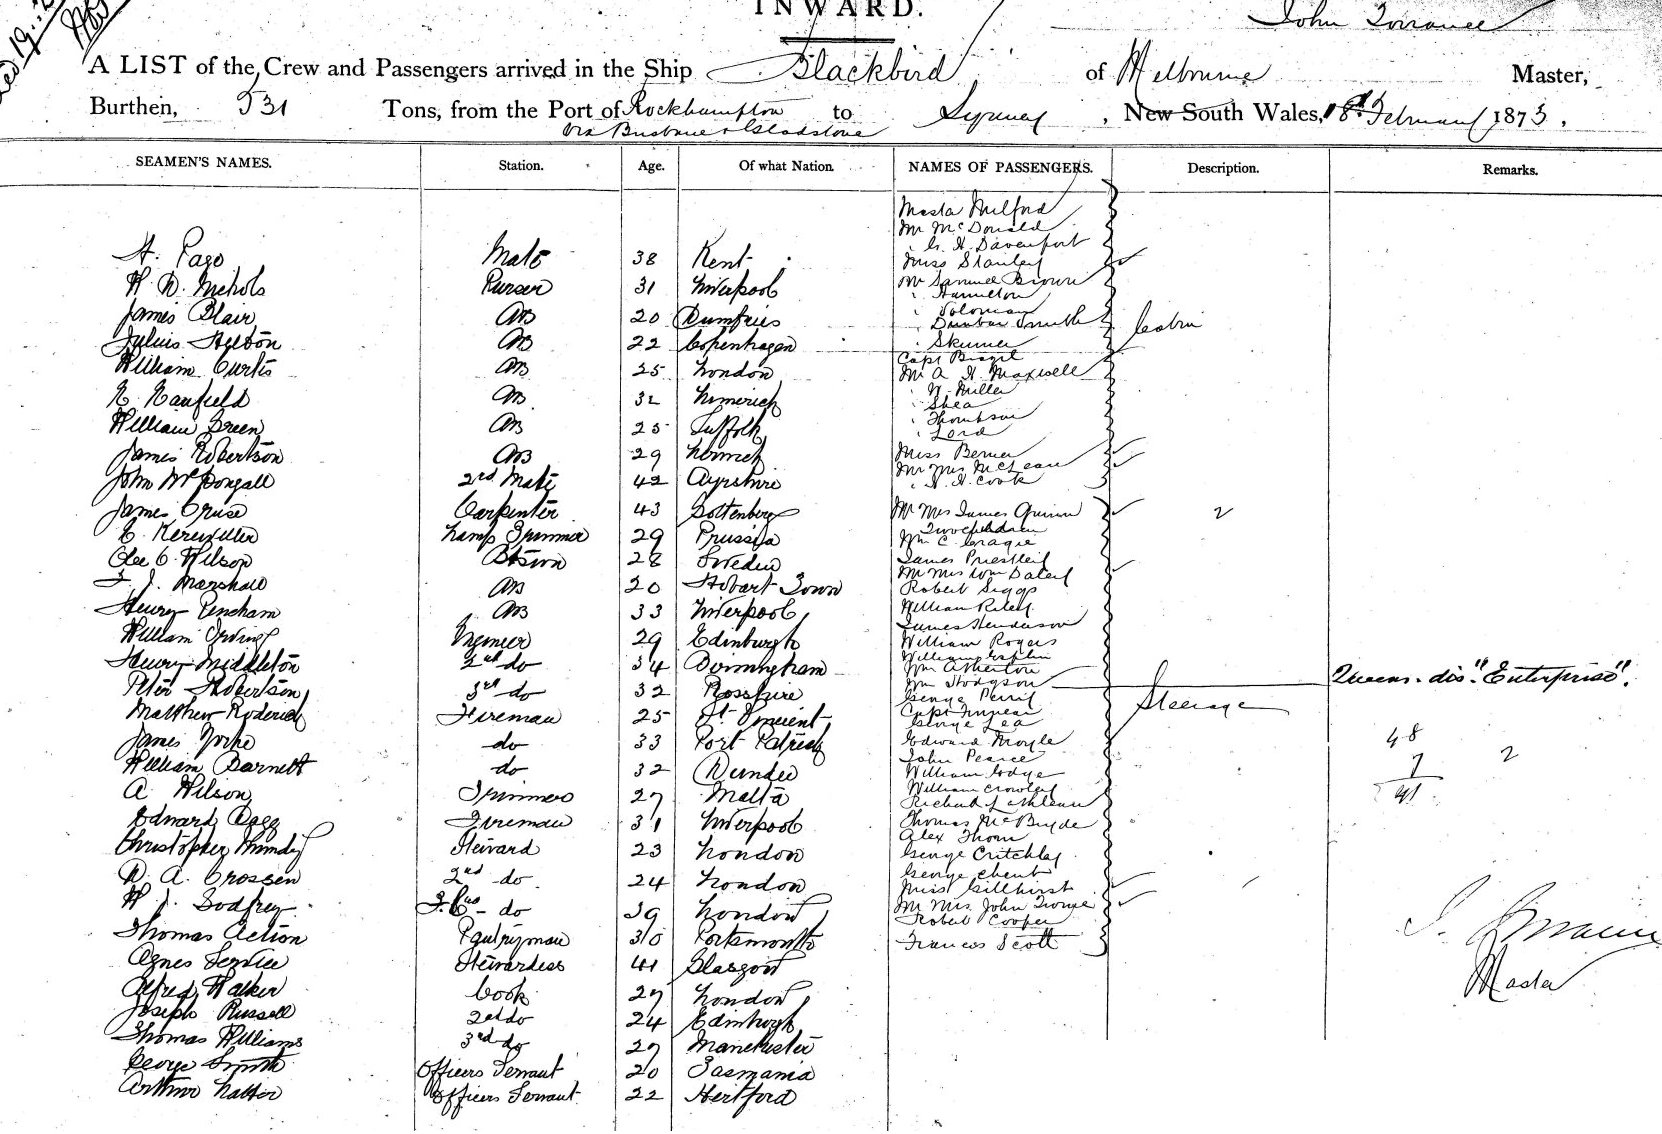 INWARD.
John Torrance
A LIST of the Crew and Passengers arrived in the Ship Blackbird of Melbourne Master,
Burthen, 531 Tons, from the Port of Rockhampton to Sydney, New South Wales, 18 February 1873.
via Brisbane & Gladstone
SEAMEN'S NAMES. Station. Age. Of what Nation. NAMES OF PASSENGERS. Description. Remarks.
A. Page Mate 38 Kent
H. D. Nichols Purser 31 Liverpool
James Blair AB 20 Dumfries
Julius AB 22 Copenhagen
William Curtis AB 25 London
AB 32 Limerick
William Green AB 25 Suffolk
James Robertson AB 29 Limerick
John McDougall 2nd Mate 42 Ayrshire
James Cruse Carpenter 43 Gottenberg
Lamp Trimmer 29 Prussia
C. Wilson Btswn 28 Sweden
F. J. Marshall AB 20 Hobart Town
Henry AB 33 Liverpool
William Irving Engineer 29 Edinburgh
Henry Middleton 2nd do 34 Birmingham
Peter Robertson 3rd do 32 Rosshire
Matthew Roderick Fireman 25 St. Vincent
James Yorke do 33 Port Patrick
William Barnett do 32 Dundee
A. Wilson Trimmer 27 Malta
Edward Fireman 31 Liverpool
Christopher Mundy Steward 23 London
D. A. Crossen 2nd do 24 London
H. J. Godfrey do 39 London
Thomas Action Pantryman 30 Portsmouth
Agnes Service Stewardess 41 Glasgow
Alfred Walker Cook 27 London
Joseph Russell 2nd do 24 Edinburgh
Thomas Williams 3rd do 27 Manchester
George Smith Officers Servant 20 Tasmania
Arthur Officers Servant 22 Hertford
Masta Milford
Mr McDonald
" G. H. Davenport
Miss Stanley
Mr Samuel Brown
" Hamilton
" Soloman
" Dunbar Smith
" Skinner
Capt
Mr A. H. Maxwell
" W. Miller
" Shea
" Thompson
" Lord
Miss
Mr Mrs McLean
" H. H. Cook
Cabin
Mr Mrs James Quinn
Two children
Wm C. Cragie
James Priestley
Mr Mrs Wm Daley
Robert Siggs
William Riley
James Henderson
William Rogers
William
Wm Atherton
Wm Hodgson
George
Capt
George Lea
Edward Moyle
John Pearce
William
William Crowley
Richard
Thomas McBryde
Alex Thom
George Critchley
George
Miss Gillhirst
Mr Mrs John
Robert Cooper
Francis Scott
2
Steerage
Queens. dis. "Enterprise".
48
7
41
2
Master